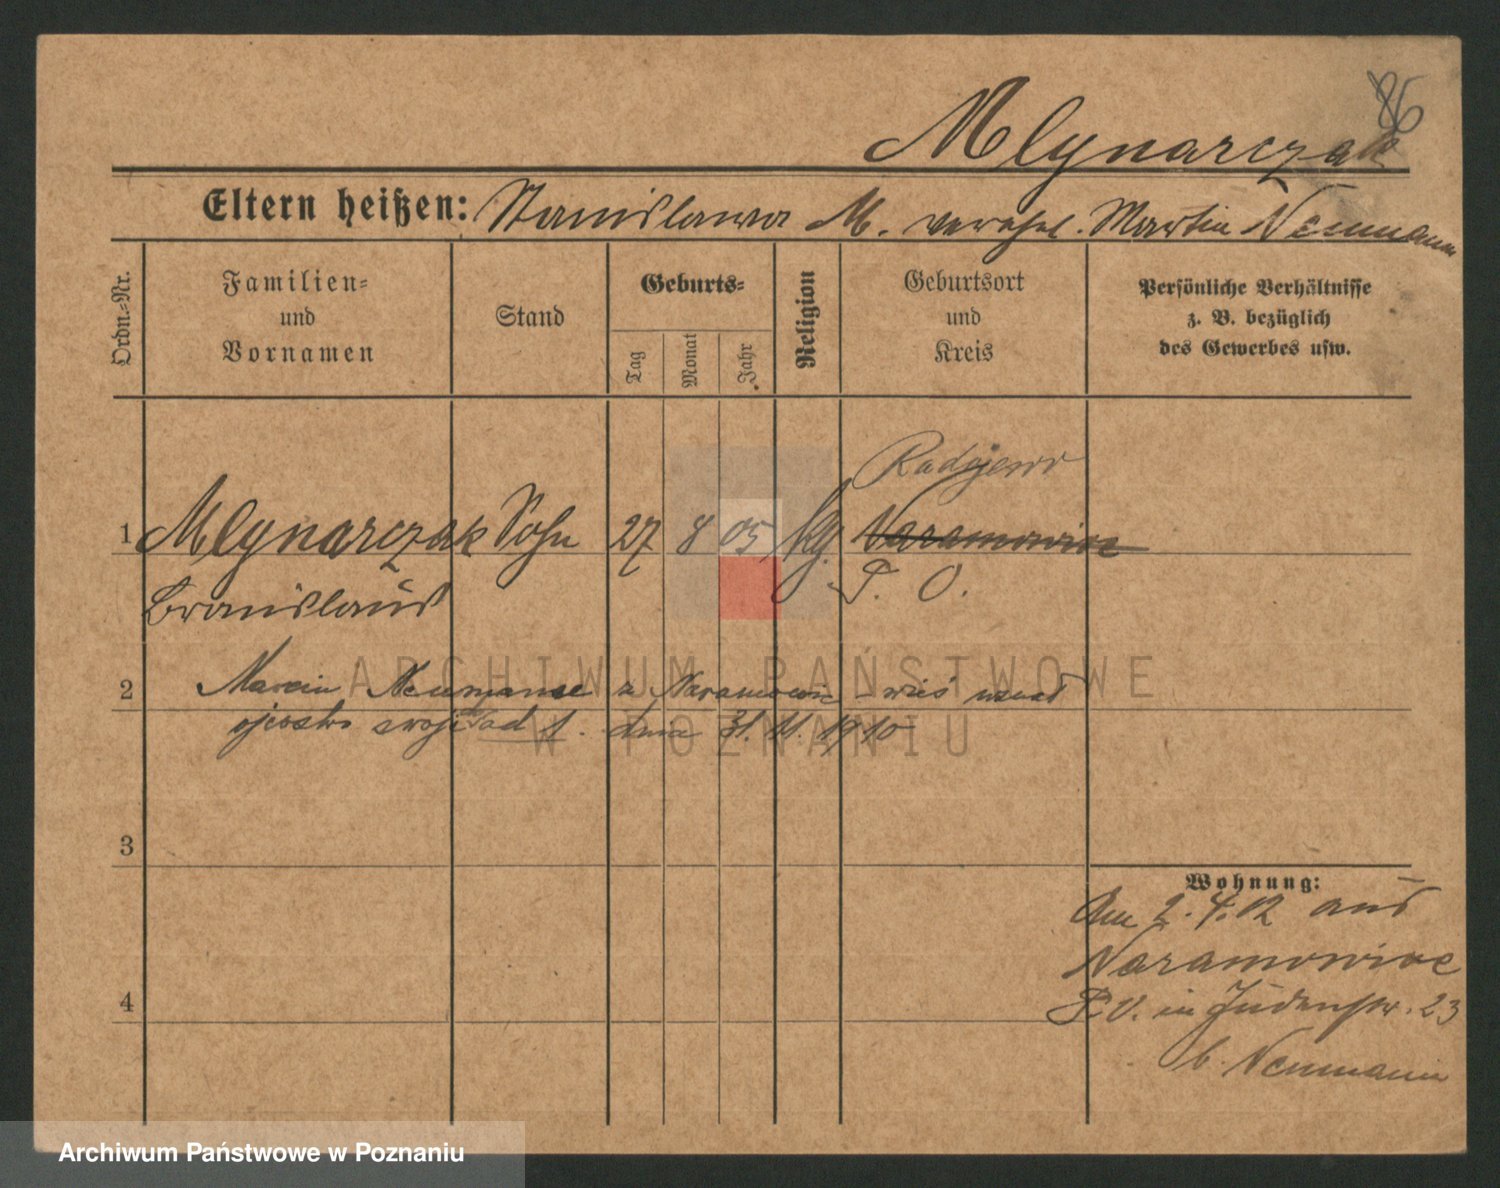 86
Mlynarczak
Eltern heißen: Stanislawa M. verehel. Martin Neumann
Ordn.-Nr.
Familien-
und
Vornamen
Stand
Geburts-
Tag
Monat
Jahr
Religion
Geburtsort
und
Kreis
Persönliche Verhältnisse
z. B. bezüglich
des Gewerbes usw.
Radojewo
1 Mlynarczak Sohn 27 8 05 kg. Naramowice
Bronislaus P. O.
2 Marcin Neumann z Naramowic - wieś uznał
ojcostwo swoje ad 1. dnia 31. 11. 1910
ARCHIWUM PAŃSTWOWE
W POZNANIU
3
Wohnung:
Am 2.4.12 aus
Naramowice
4 P.O. in Judenstr. 23
b. Neumann
Archiwum Państwowe w Poznaniu